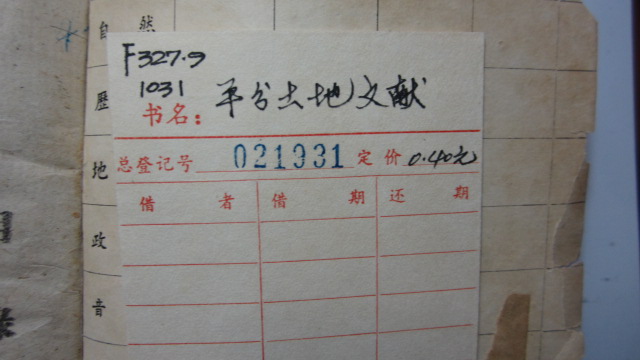 F327.9
1031
书名：平分土地文献
总登记号 021931 定价 0.40元
借者 借期 还期
自然
歷
地
政
音